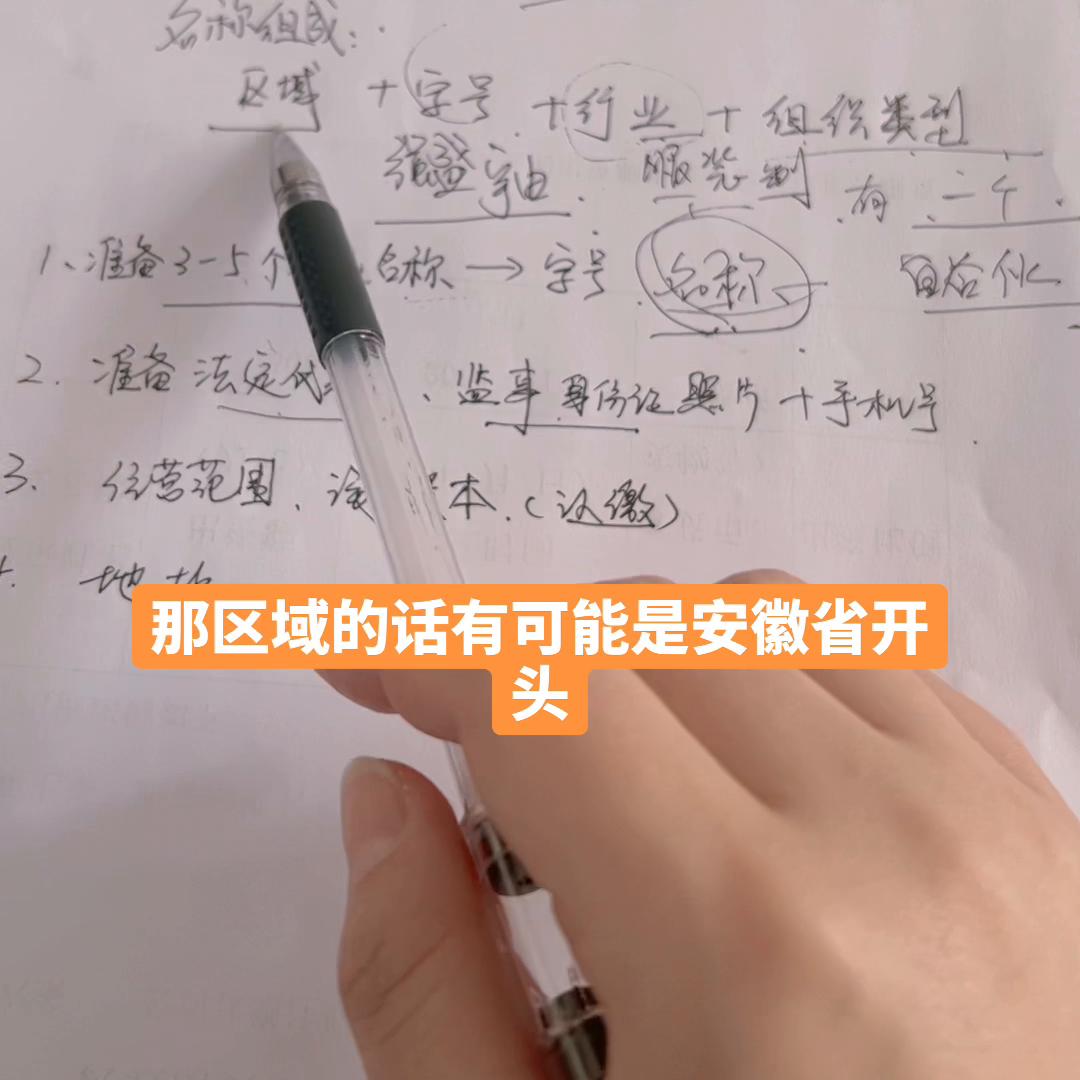 名称组成:
区域 + 字号 + 行业 + 组织类型
强盛宇宙. 服装制 有 一个
1、准备3-5个 名称 → 字号 名称
合伙
2. 准备 法定代 、监事 身份证照片 + 手机号
3. 经营范围、 本.(认缴)
地址
那区域的话有可能是安徽省开
头